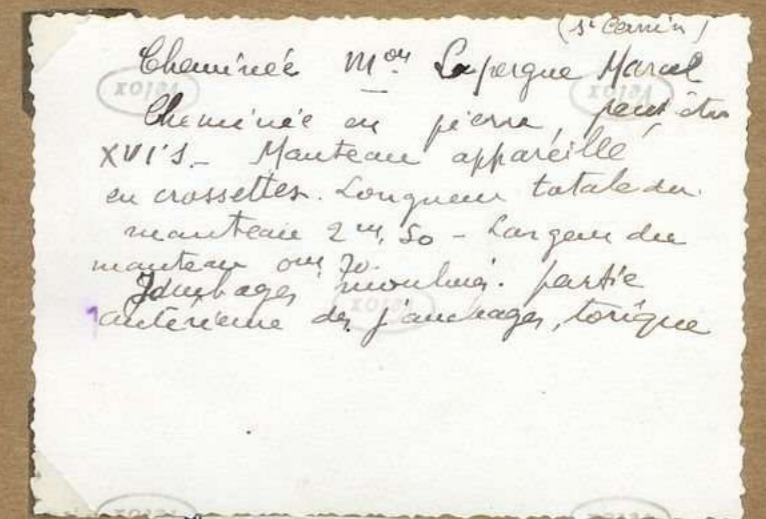 (St Cernin)
Cheminée Mon Lafergue Marcel
Cheminée en pierre, peut être
XVI's. - Manteau appareillé
en crossettes. Longueur totale du
manteau 2m,50 - Largeur du
manteau 0m,70.
Jambages moulurés. partie
antérieure des jambages, torique
velox
velox
velox
velox
velox